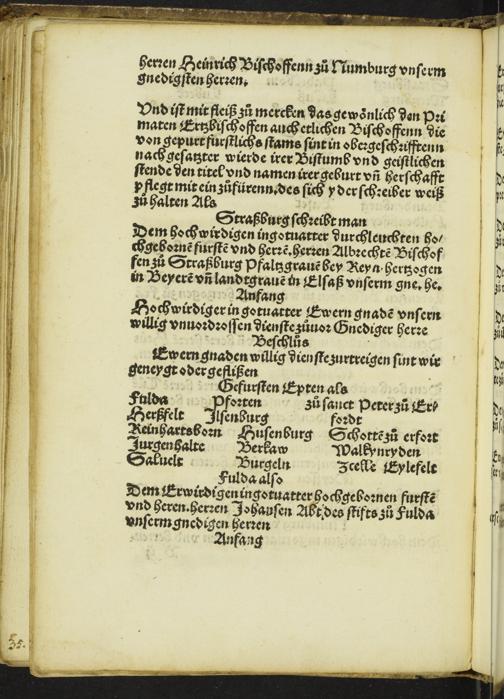 herren Heinrich Bischoffenn zů Numburg vnserm
gnedigsten herren.
Vnd ist mit fleiß zů mercken das gewönlich den Pri
maten Ertzbischoffen auch etlichen Bischoffenn die
von gepurt furstlichs stams sint in obergeschrifftenn
nach gesatzter wierde irer Bistumb vnd geistlichen
stende den titel vnd namen irer geburt vn̄ herschafft
pflegt mit ein zů fürenn. des sich yder schreiber weiß
zů halten Als
Straßburg schreibt man
Dem hochwirdigen in got vatter durchleuchten ho/
chgebornē furstē vnd herrē. herren Albrechtē Bischof
fen zů Straßburg Pfaltzgrauē bey Reyn. hertzogen
in Beyerē vn̄ landtgrauē in Elsaß vnserm gne. he.
Anfang
Hochwirdiger in got vatter Ewern gnadē vnsern
willig vnuordrossen dienste zůuor Gnediger herre
Beschlůs
Ewern gnaden willig dienste zurtzeigen sint wir
geneygt oder geflißen
Gefursten Epten als
Fulda Pforten zů sanct Peter zů Er/
Herßfelt Jlsenburg fordt
Reinhartsborn Husenburg Schottē zů erfort
Jurgenhalte Berkaw Walkynryden
Saluelt Burgeln Zcelle Eylefelt
Fulda also
Dem Erwirdigen in got vatter hochgebornen furstē
vnd heren. herren Johansen Abt des stifts zů Fulda
vnserm gnedigen herren
Anfang
35.